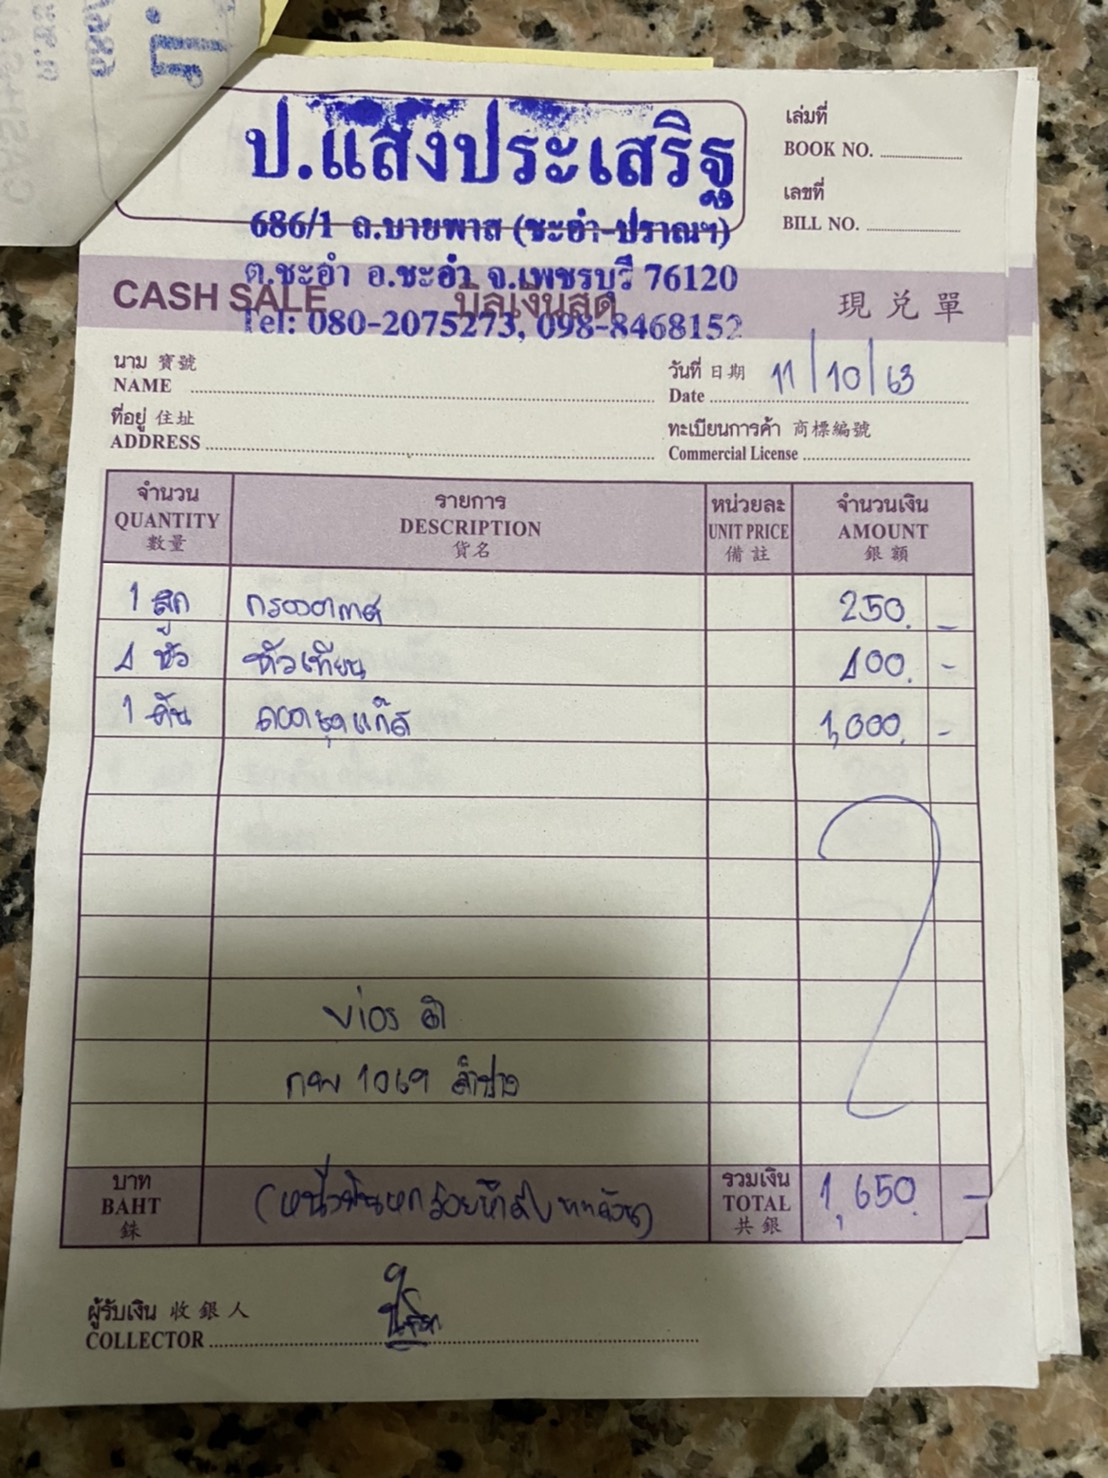 ป.แสงประเสริฐ
686/1 ถ.บายพาส (ชะอำ-ปราณฯ)
ต.ชะอำ อ.ชะอำ จ.เพชรบุรี 76120
Tel: 080-2075273, 098-8468152
เล่มที่
BOOK NO.
เลขที่
BILL NO.
CASH SALE บิลเงินสด 現兌單
นาม 寶號
NAME
วันที่ 日期 11/10/63
Date
ที่อยู่ 住址
ADDRESS
ทะเบียนการค้า 商標編號
Commercial License
จำนวน รายการ หน่วยละ จำนวนเงิน
QUANTITY DESCRIPTION UNIT PRICE AMOUNT
數量 貨名 備註 銀額
1 ลูก กรองอากาศ 250. -
4 หัว หัวเทียน 400. -
1 คัน ถอดชุดแก๊ส 1,000. -
vios
กพ 1069 ลำปาง
บาท (หนึ่งพันหกร้อยห้าสิบบาทถ้วน) รวมเงิน 1,650. -
BAHT TOTAL
銖 共銀
ผู้รับเงิน 收銀人
COLLECTOR